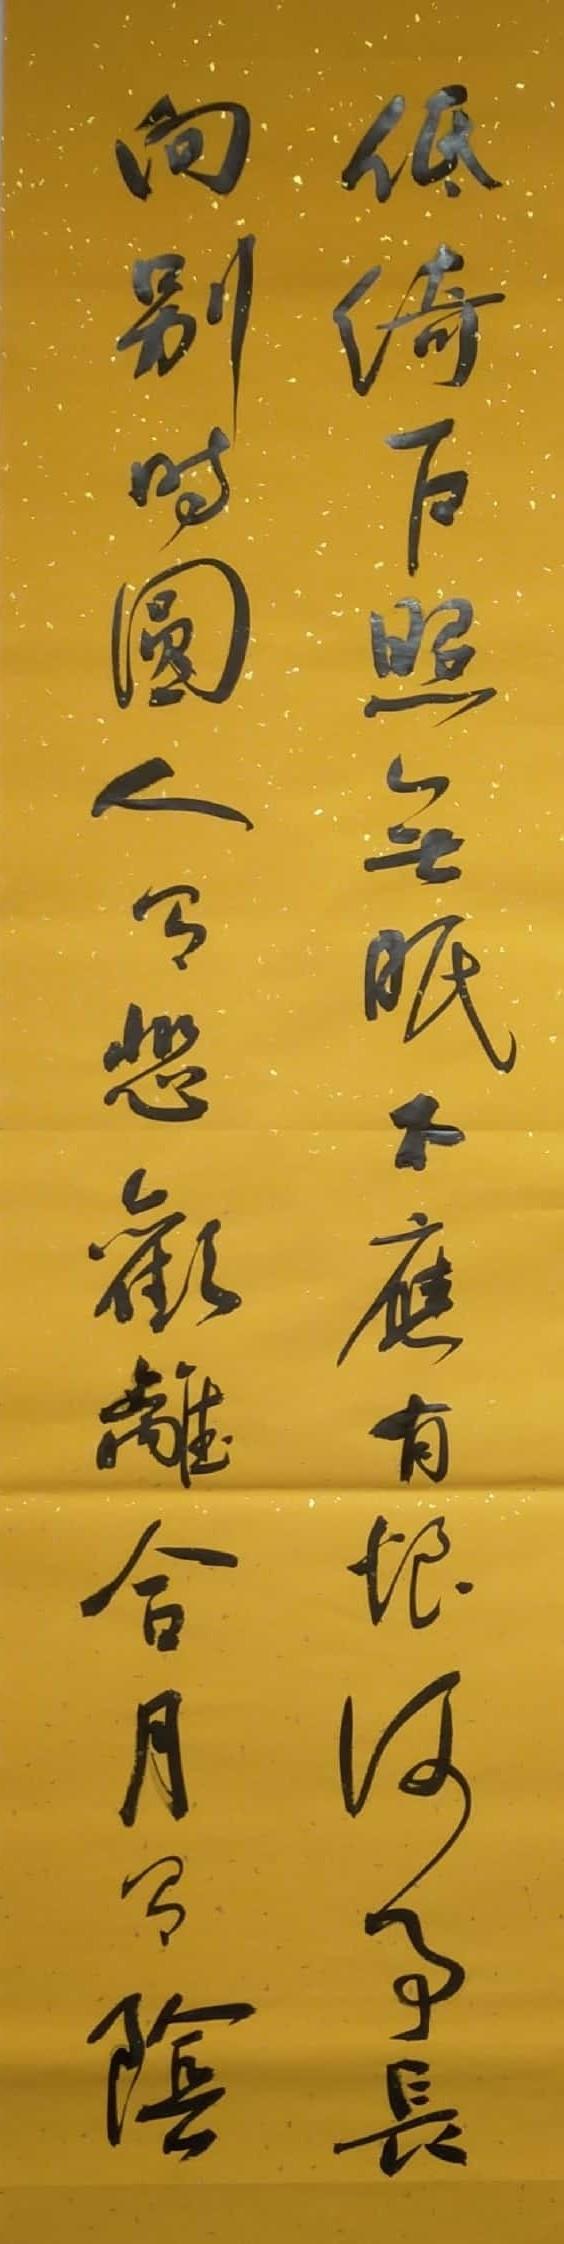 低綺户照無眠不應有恨何事長
向别時圓人有悲歡離合月有陰